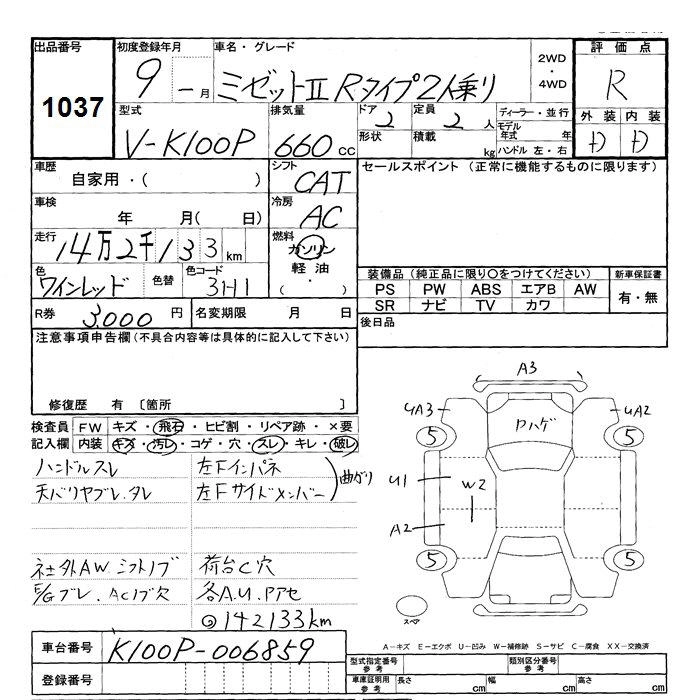 出品番号
1037
初度登録年月
9 ー 月
車名・グレード
ミゼットII Rタイプ 2人乗り
2WD
・
4WD
評価点
R
型式
V-K100P
排気量
660 cc
ドア
2
形状
定員
2 人
積載
kg
ディーラー・並行
モデル年式 年
ハンドル 左・右
外装 内装
D D
車歴
自家用・( )
シフト
CAT
セールスポイント (正常に機能するものに限ります)
車検
年 月( 日)
冷房
AC
走行
14万2千133km
燃料
ガソリン
軽油
・
( )
色
ワインレッド
色替
色コード
3H1
装備品 (純正品に限り○をつけてください)
新車保証書
PS PW ABS エアB AW
有・無
SR ナビ TV カワ
R券 3,000 円
名変期限 月 日
後日品
注意事項申告欄 (不具合内容等は具体的に記入して下さい)
修復歴 有 〔箇所 〕
検査員 FW キズ・飛石・ヒビ割・リペア跡・×要
記入欄 内装 キズ・汚レ・コゲ・穴・スレ・キレ・破レ
ハンドルスレ
天バリヤブレ.タレ
左Fインパネ
左Fサイドメンバー
曲がり
社外AW シフトノブ
E/Gブレ.ACノブ欠
荷台C穴
各A.U.Pアセ
◎142133km
A3
UA3
UA2
ロハゲ
5
5
U1
W2
A2
5
5
スペア
A−キズ E−エクボ U−凹み W−補修跡 S−サビ C−腐食 XX−交換済
車台番号
K100P-006859
登録番号
型式指定番号
参考
類別区分番号
参考
車庫証明用
参考
長さ cm
幅 cm
高さ cm